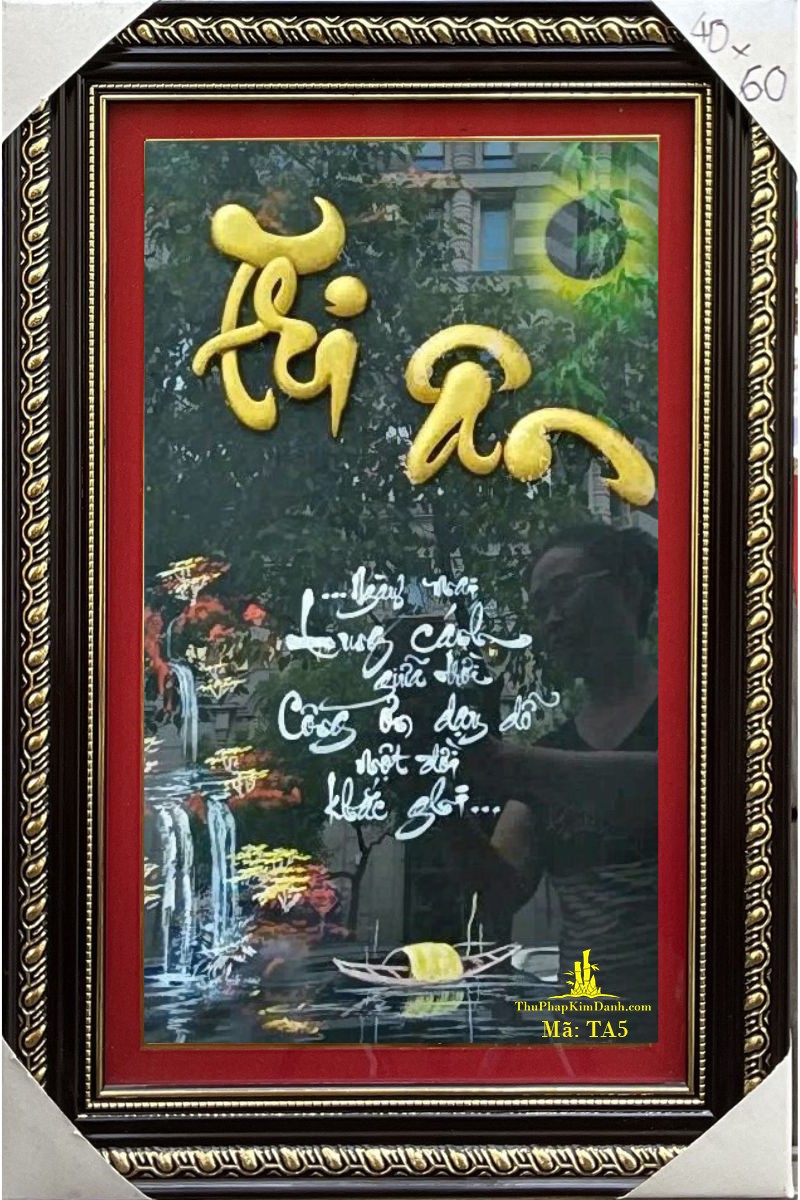 40 x 60
Tri Ân
...Ngày mai
Tung cánh
giữa trời
Công ơn dạy dỗ
một đời
khắc ghi...
ThuPhapKimDanh.com
Mã: TA5